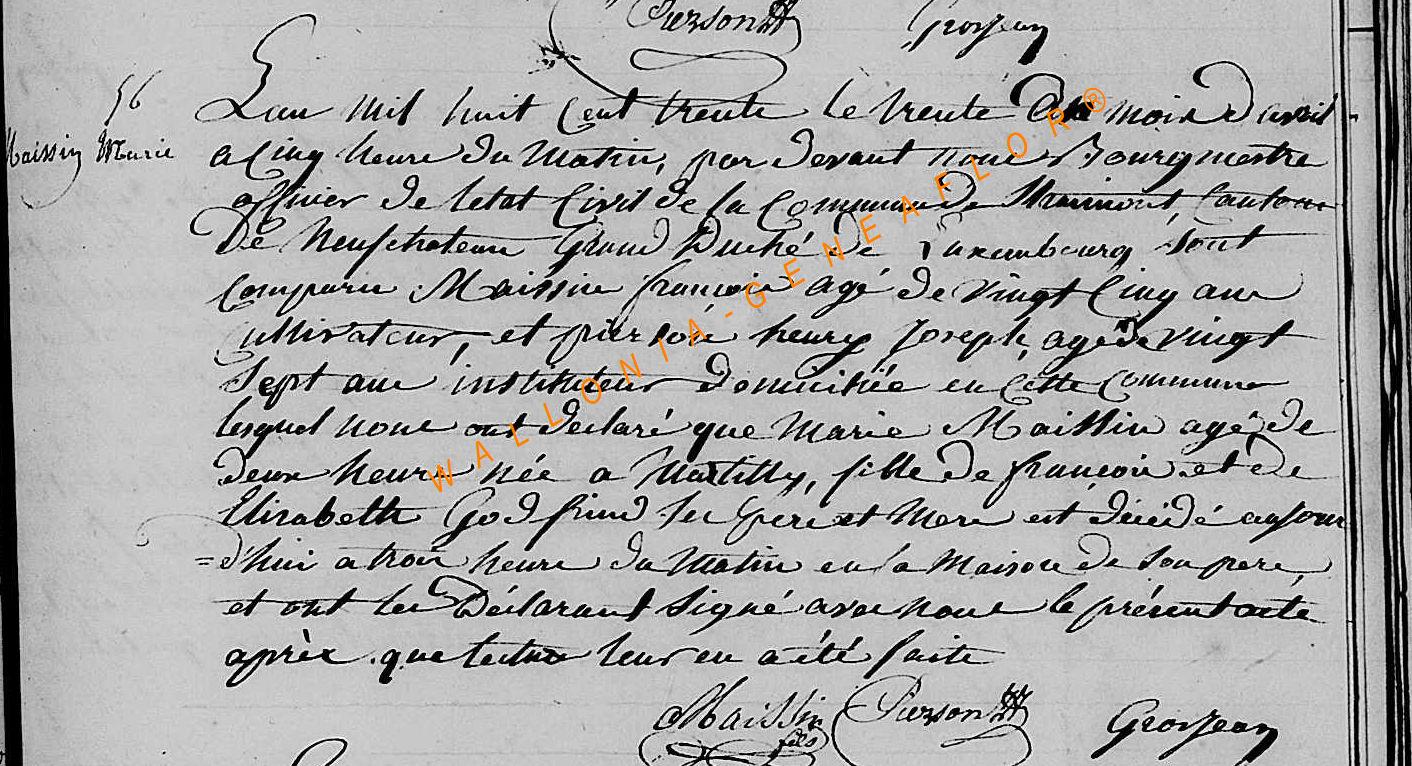 Pierson Grosjean
56
Maissin Marie
L'an mil huit Cent trente le trente du mois d'avril
a cinq heure du Matin, par devant nous Bourgmestre
officier de letat Civil de la Commune de Straimont Canton
De Neufchateau Grand Duché de Luxembourg sont
Comparus Maissin françois agé de vingt Cinq ans
cultivateur, et pierson henry Joseph, agé de vingt
Sept ans instituteur domiciliée en cette commune
lesquel nous ont declaré que Marie Maissin agé de
deux heures née a Martilly, fille de françois et de
Elisabeth Godfrind ses pere et Mere est décédé aujour
=d'hui a trois heure du Matin en la Maison de son pere,
et ont les Déclarant signé avec nous le présent acte
après que lecture leur en a été faite
Maissin fils Pierson Grosjean
WALLONIA-GENEAFLOR®